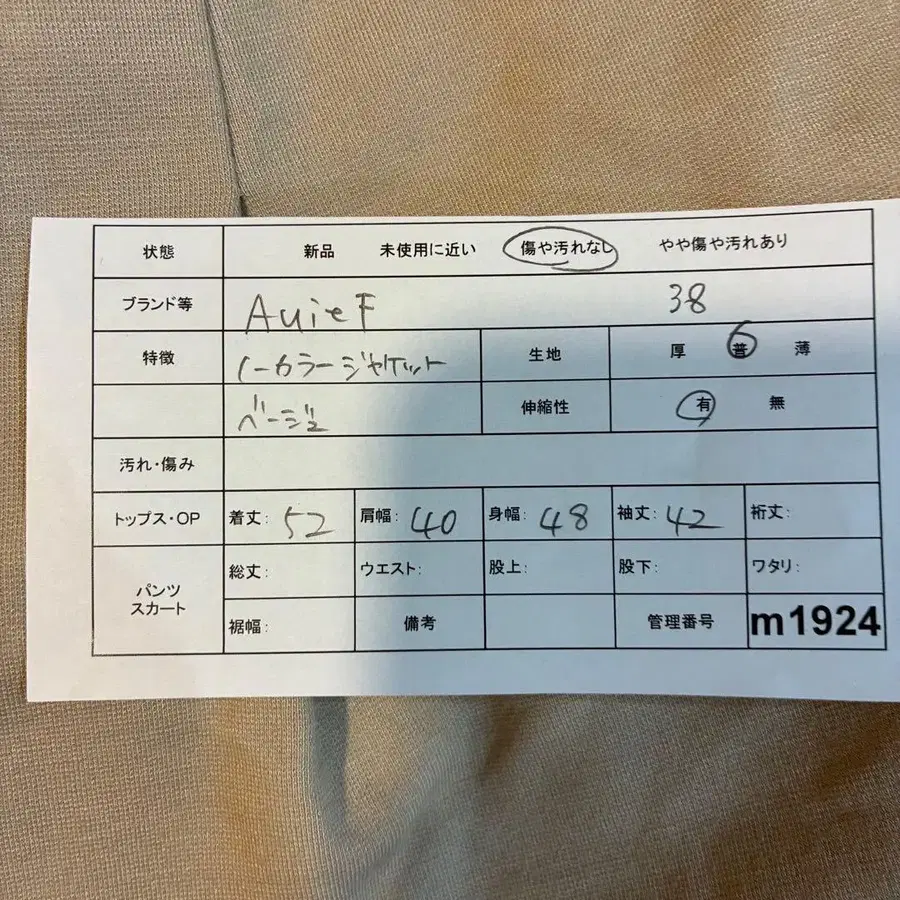 状態 新品 未使用に近い 傷や汚れなし やや傷や汚れあり
ブランド等 AuieF 38
特徴 ノーカラージャケット 生地 厚 普 薄
ベージュ 伸縮性 有 無
汚れ・傷み
トップス・OP 着丈: 52 肩幅: 40 身幅: 48 袖丈: 42 裄丈:
パンツ スカート 総丈: ウエスト: 股上: 股下: ワタリ:
裾幅: 備考 管理番号 m1924